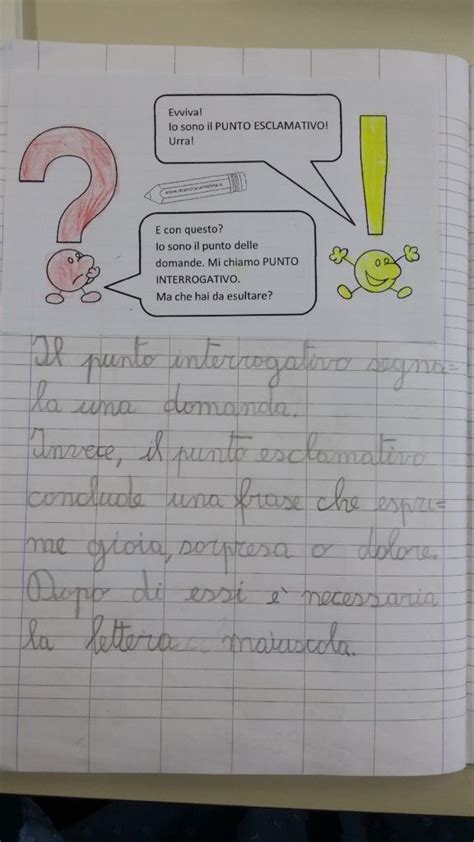 Evviva!
Io sono il PUNTO ESCLAMATIVO!
Urra!
E con questo?
Io sono il punto delle
domande. Mi chiamo PUNTO
INTERROGATIVO.
Ma che hai da esultare?
Il punto interrogativo segna=
la una domanda.
Invece, il punto esclamativo
conclude una frase che espri=
me gioia, sorpresa o dolore.
Dopo di essi è necessaria
la lettera maiuscola.